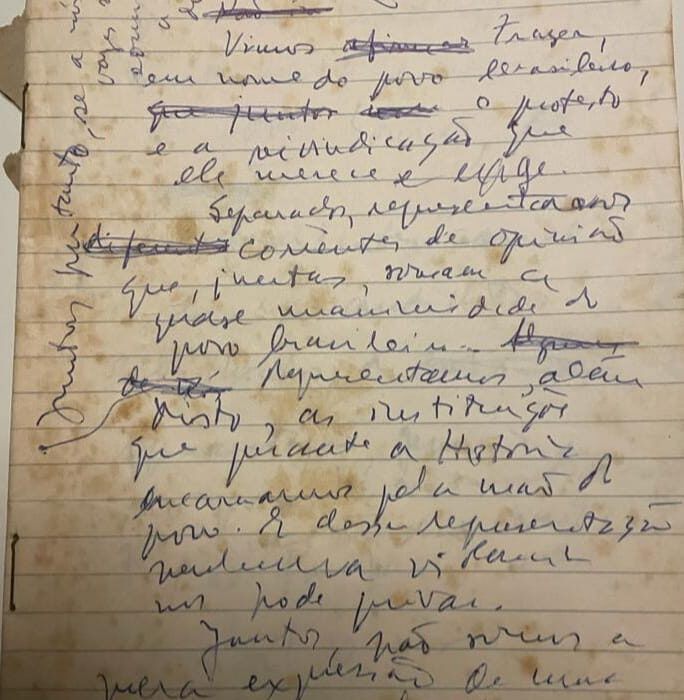 Vimos afirmar Trazer,
em nome do povo brasileiro,
que juntos o protesto
e a reivindicação que
ele merece e exige.
Separados, representamos
diferentes correntes de opinião
que, juntas, somam a
quase unanimidade do
povo brasileiro.
de nós Representamos, além
disto, as instituições
que perante a História
encarnamos pela mão do
povo. E dessa representação
nenhuma violência
nos pode privar.
Juntos, não somos a
mera expressão de uma
Juntos, portanto, se a